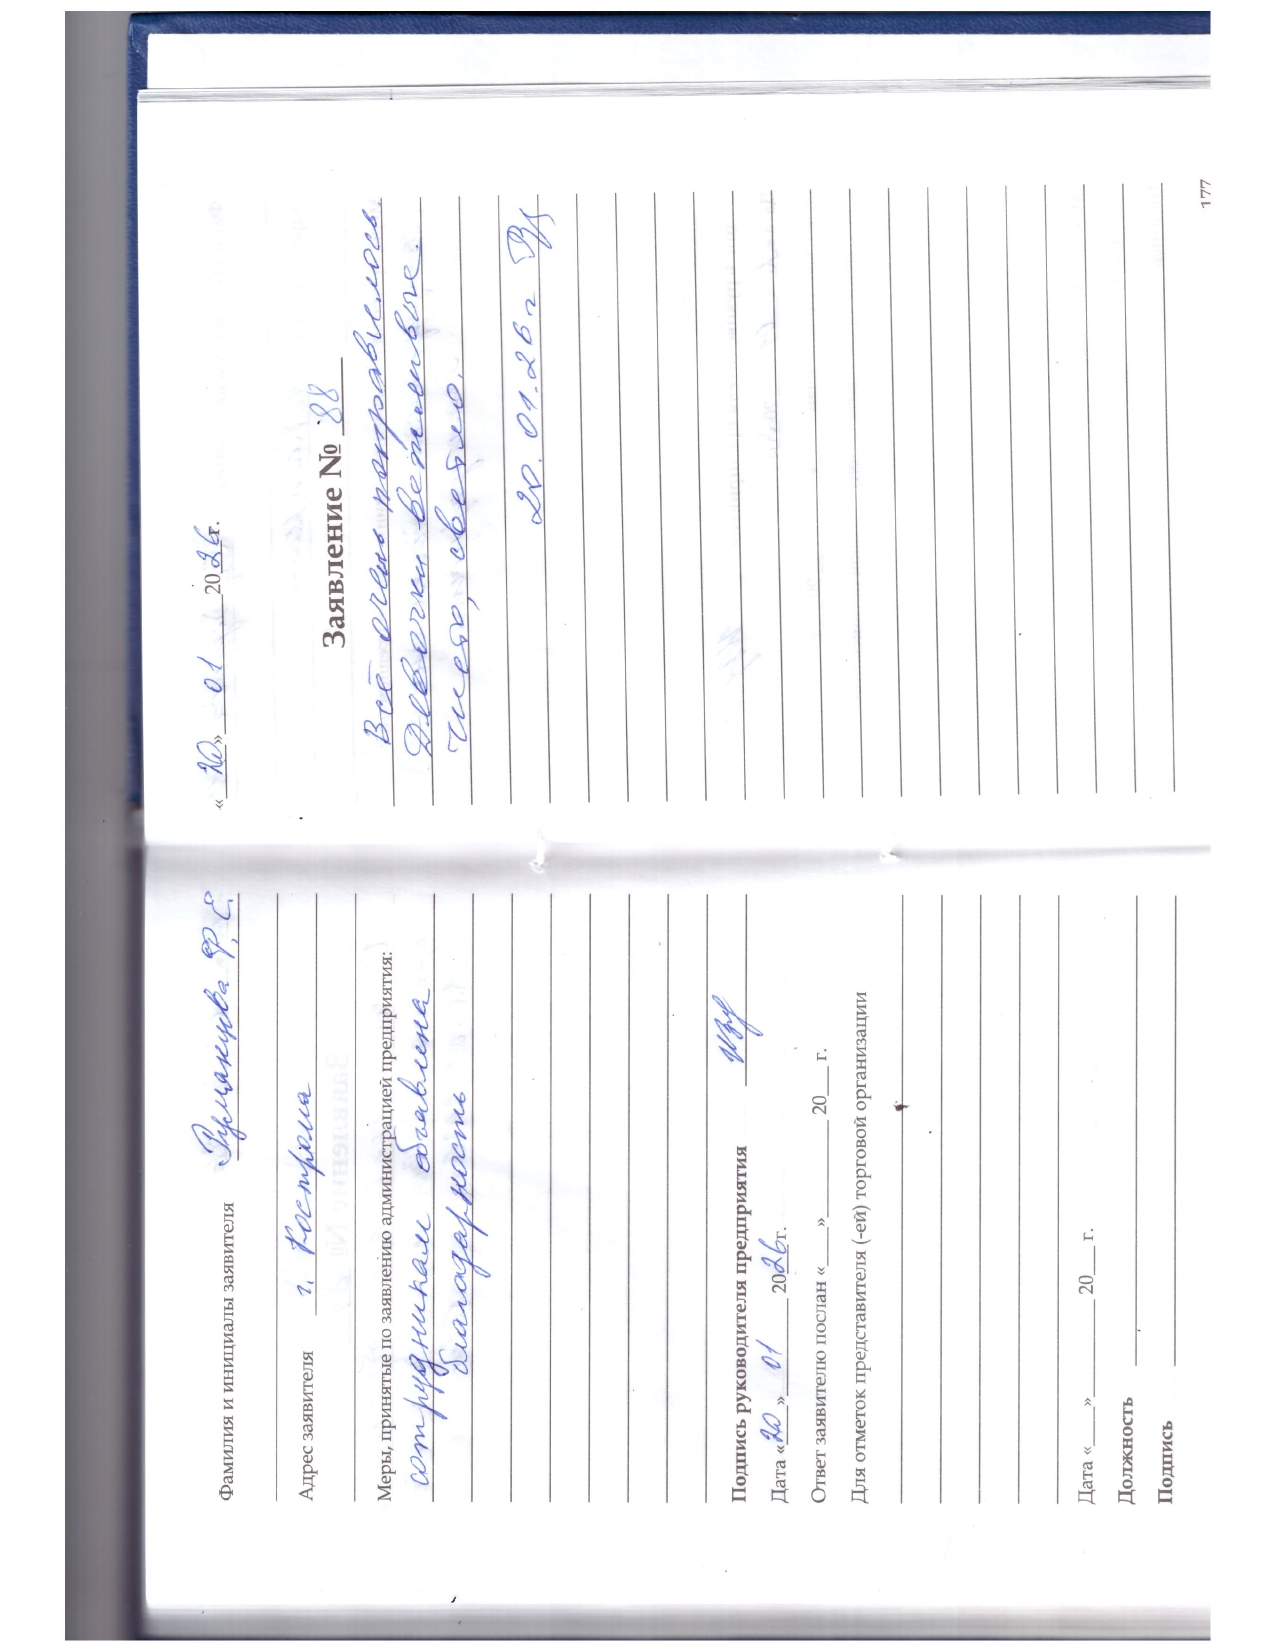 Фамилия и инициалы заявителя Румянцева Ф. Е.
Адрес заявителя г. Кострома
Меры, принятые по заявлению администрацией предприятия:
сотрудникам объявлена
благодарность
Подпись руководителя предприятия
Дата «20» 01 2026г.
Ответ заявителю послан «___» ______ 20___ г.
Для отметок представителя (-ей) торговой организации
Дата «___» ______ 20___ г.
Должность
Подпись
«20» 01 2026г.
Заявление № 88
Всё очень понравилось.
Девочки вежливые.
Чисто, светло.
20. 01. 26 г
177